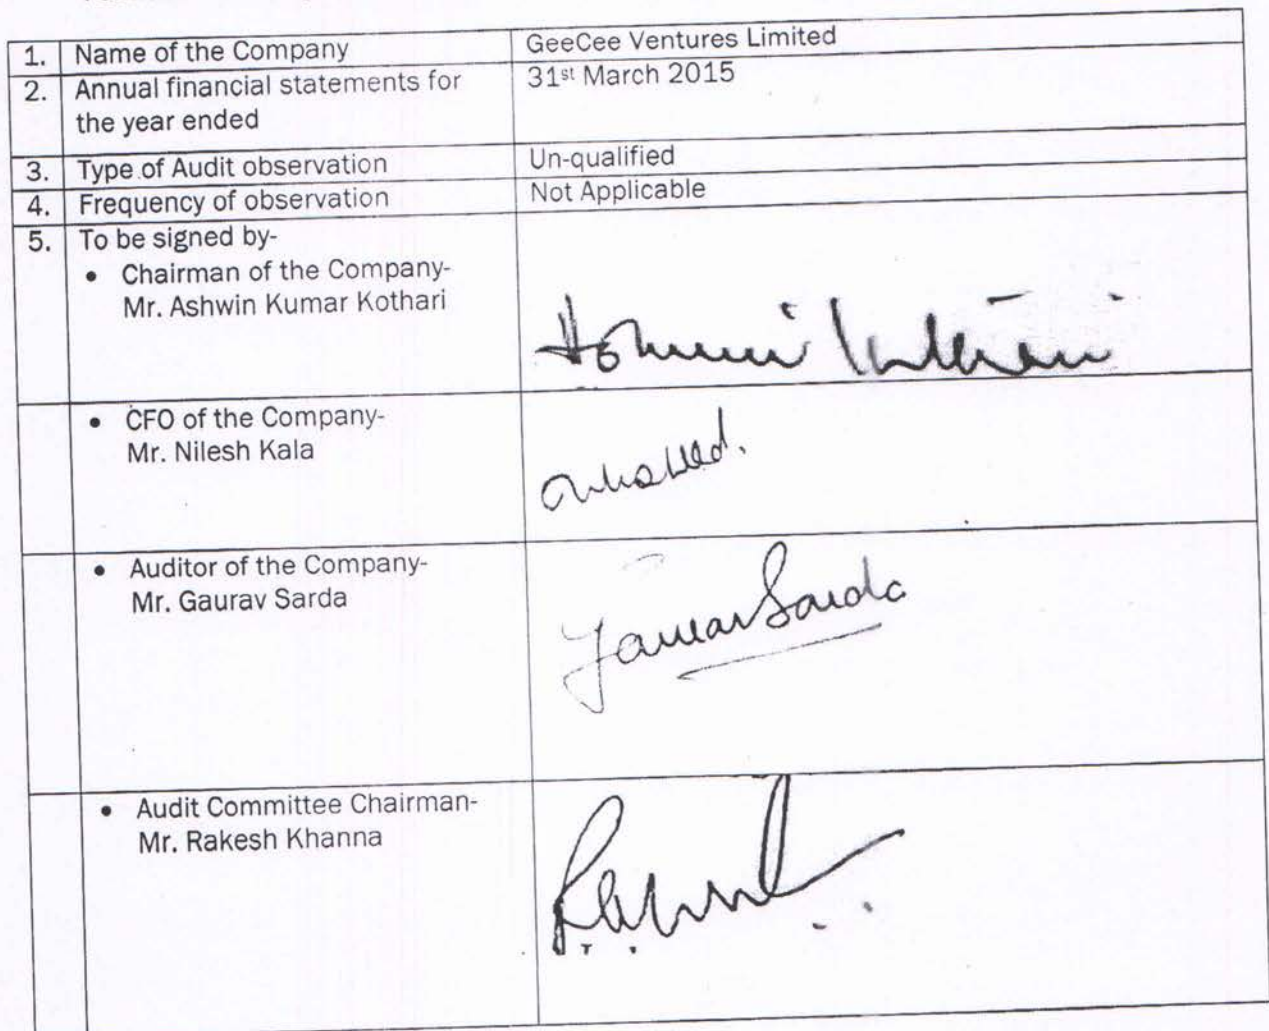 1. Name of the Company GeeCee Ventures Limited
2. Annual financial statements for 31st March 2015
the year ended
3. Type of Audit observation Un-qualified
4. Frequency of observation Not Applicable
5. To be signed by-
• Chairman of the Company-
Mr. Ashwin Kumar Kothari
• CFO of the Company-
Mr. Nilesh Kala
• Auditor of the Company-
Mr. Gaurav Sarda
Gaurav Sarda
• Audit Committee Chairman-
Mr. Rakesh Khanna